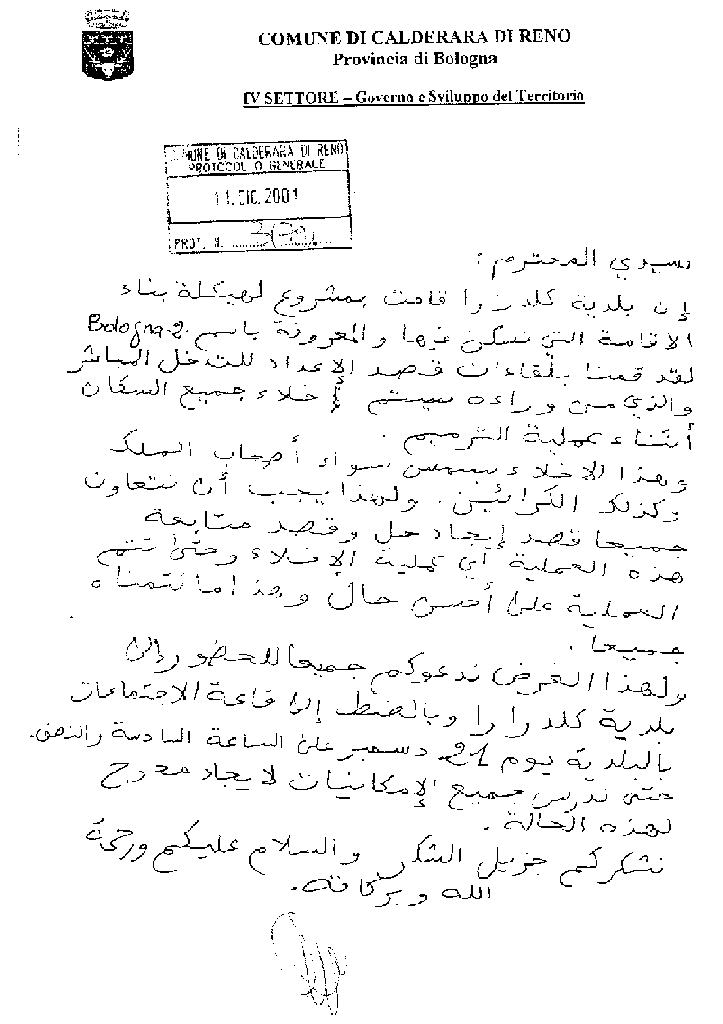 COMUNE DI CALDERARA DI RENO
Provincia di Bologna
IV SETTORE – Governo e Sviluppo del Territorio
COMUNE DI CALDERARA DI RENO
PROTOCOLLO GENERALE
11. DIC. 2001
PROT. N.
سيدي المحترم :
إن بلدية كلدرارا قامت بمشروع لهيكلة بناء
الاقامة التي نسكن فيها والمعرونة باسم Bologna-2.
لقد قمنا بلقاءات قصد الإعداد للتدخل المباشر
والذي من وراءه سيتم إخلاء جميع السكان
أثناء عملية الترميم .
وهذا الاخلاء سيمس سواء أصحاب الملك
وكذلك الكرائين. ولهذا يجب أن نتعاون
جميعا قصد إيجاد حل وقصد متابعة
هذه العملية أي عملية الإخلاء وحتى تتم
العملية على أحسن حال وهذا ما نتمناه
جميعا .
ولهذا الغرض ندعوكم جميعا للحضور إلى
بلدية كلدرارا وبالضبط إلى قاعة الاجتماعات
بالبلدية يوم 21 دسمبر على الساعة السادسة والنصف.
حتى ندرس جميع الإمكانيات لايجاد مخرج
لهذه الحالة .
نشكركم جزيل الشكر والسلام عليكم ورحمة
الله وبركاته.